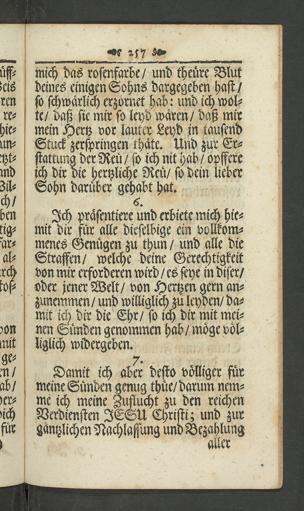 257
mich das rosenfarbe/ und theüre Blut
deines einigen Sohns dargegeben hast/
so schwärlich erzörnet hab: und ich wol-
te/ daß sie mir so leyd wären/ daß mir
mein Hertz vor lauter Leyd in tausend
Stuck zerspringen thäte. Und zur Er-
stattung der Reü/ so ich nit hab/ opffere
ich dir die hertzliche Reü/ so dein lieber
Sohn darüber gehabt hat.
6.
Ich präsentiere und erbiete mich hie-
mit dir für alle dieselbige ein vollkom-
menes Genügen zu thun/ und alle die
Straffen/ welche deine Gerechtigkeit
von mir erforderen wird/ es seye in diser/
oder jener Welt/ von Hertzen gern an-
zunemmen/ und williglich zu leyden/ da-
mit ich dir die Ehr/ so ich dir mit mei-
nen Sünden genommen hab/ möge völ-
liglich widergeben.
7.
Damit ich aber desto völliger für
meine Sünden genug thüe/ darum nem-
me ich meine Zuflucht zu den reichen
Verdiensten JESU Christi; und zur
gäntzlichen Nachlassung und Bezahlung
aller